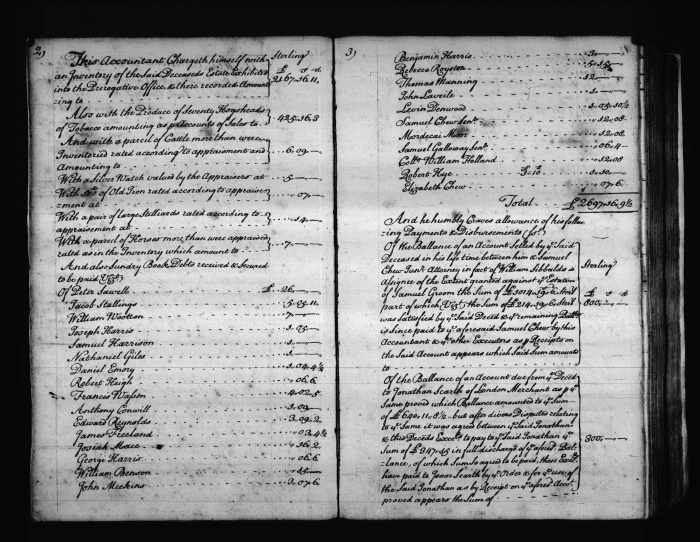 2,
This Accountant Chargeth himself with
an Inventory of the Said Deceaseds Estate Exhibited
into the Prerogative Office & there recorded Amount
=ing to
Sterling
£ s d
2167.16.11.
Also with the Produce of Seventy Hogsheads
of Tobacco amounting as p Accounts of Sales to
425.16.3
And with a parcel of Cattle more than were
Inventoried rated according to appraisment and
Amounting to
6.09.—
With a Silver Watch valued by the Appraisers at
5.—
With of Old Iron rated according to appraise
=ment at
.07.—
With a pair of large Stilliards rated according to
appraisement at
.14.—
With a parcel of Horses more than were appraised
rated as in the Inventory which amount to
.7.—
And also Sundry Book Debts received & Secured
to be paid Vizt
Of Peter Sewell £.26.—
Jacob Stallings 5.05.11.
William Wootten 7.—
Joseph Harris 1.05.—
Samuel Harrison 1.—
Nathaniel Giles 1.—
Daniel Emory 1.04.4½
Robert Heigh .06.6
Francis Wasson 4.02.5
Anthony Conwill 1.09.—
Edward Reynolds 3.09.2
James Freeland .03.4½
Josiah Mace .16.2
George Harris .06.6
William Benson .15.—
John Meekins 3.07.6
3,
Benjamin Harris 3.—
Rebecca Royston 5.15.—
Thomas Manning 12.—
John Laveile 1.—
Levin Denwood 1.05.10½
Samuel Chew Senr. .12.08
Mordecai Moor .12.08
Samuel Galloway Senr. .06.4
Collo. William Holland .12.08
Robert Kaye 1.10.—
Elizabeth Chew .07.6
Total £2697.16.9½
And he humbly Craves allowance of his follow
=ing Payments & Disbursements (for)
Of the Ballance of an Account Settled by ye Said
Deceased in his life time between him & Samuel
Chew Junr. Attorney in fact of William Sibbalds &
Assignee of the Extent granted against ye Estate
of Samuel Groom the Sum of
part of which, Vizt. the Sum of
was Satisfied by ye Said Deced & ye remaining
is Since paid to ye aforesaid Samuel Chew by this
Accountant & ye other Executors as p Receipts on
the Said Account appears which Said Sum amounts
to
Sterling
£ s d
800.—
Of the Ballance of an Account due from ye Deced
to Jonathan Scarth of London Merchant as p ye
Same proved which Ballance amounted to ye Sum
of £690.11.8½ – but after divers Disputes relating
to ye Same it was agreed between ye Said Jonathan
& this Deceds Execrs. to pay to ye Said Jonathan ye
Sum of £947.15 in full discharge of ye afores'd Bal
=lance, of which Sum so agreed to be paid, these Execrs.
have paid to Isaac Scarth by ye Order & for ye use of
the Said Jonathan as by Receipt on ye afores'd Acco.
proved appears the Sum of
800.—